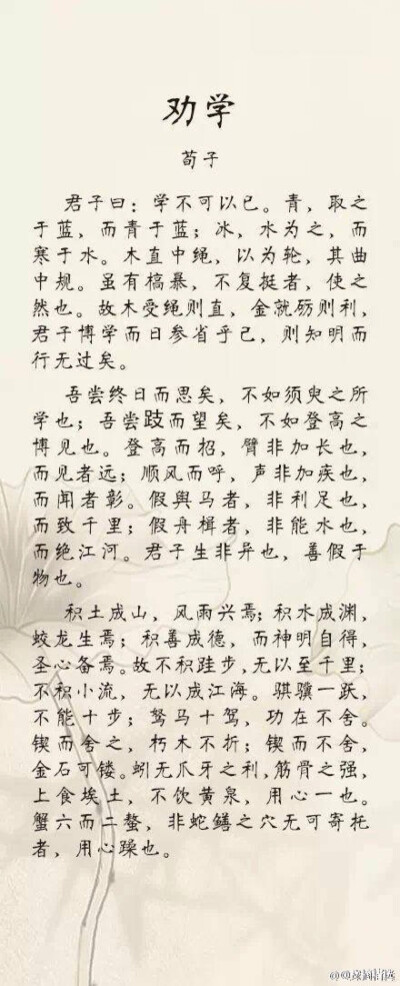 劝学
荀子
君子曰：学不可以已。青，取之
于蓝，而青于蓝；冰，水为之，而
寒于水。木直中绳，以为轮，其曲
中规。虽有槁暴，不复挺者，使之
然也。故木受绳则直，金就砺则利，
君子博学而日参省乎己，则知明而
行无过矣。
吾尝终日而思矣，不如须臾之所
学也；吾尝跂而望矣，不如登高之
博见也。登高而招，臂非加长也，
而见者远；顺风而呼，声非加疾也，
而闻者彰。假舆马者，非利足也，
而致千里；假舟楫者，非能水也，
而绝江河。君子生非异也，善假于
物也。
积土成山，风雨兴焉；积水成渊，
蛟龙生焉；积善成德，而神明自得，
圣心备焉。故不积跬步，无以至千里；
不积小流，无以成江海。骐骥一跃，
不能十步；驽马十驾，功在不舍。
锲而舍之，朽木不折；锲而不舍，
金石可镂。蚓无爪牙之利，筋骨之强，
上食埃土，下饮黄泉，用心一也。
蟹六而二螯，非蛇鳝之穴无可寄托
者，用心躁也。